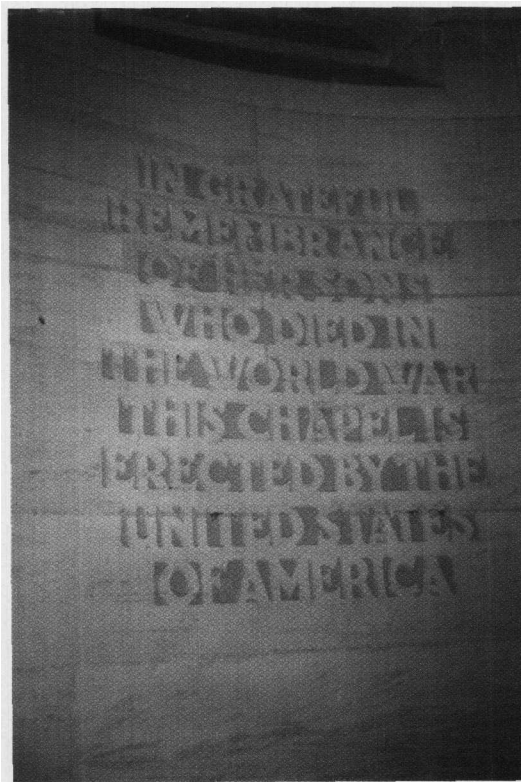 IN GRATEFUL
REMEMBRANCE
OF HER SONS
WHO DIED IN
THE WORLD WAR
THIS CHAPEL IS
ERECTED BY THE
UNITED STATES
OF AMERICA